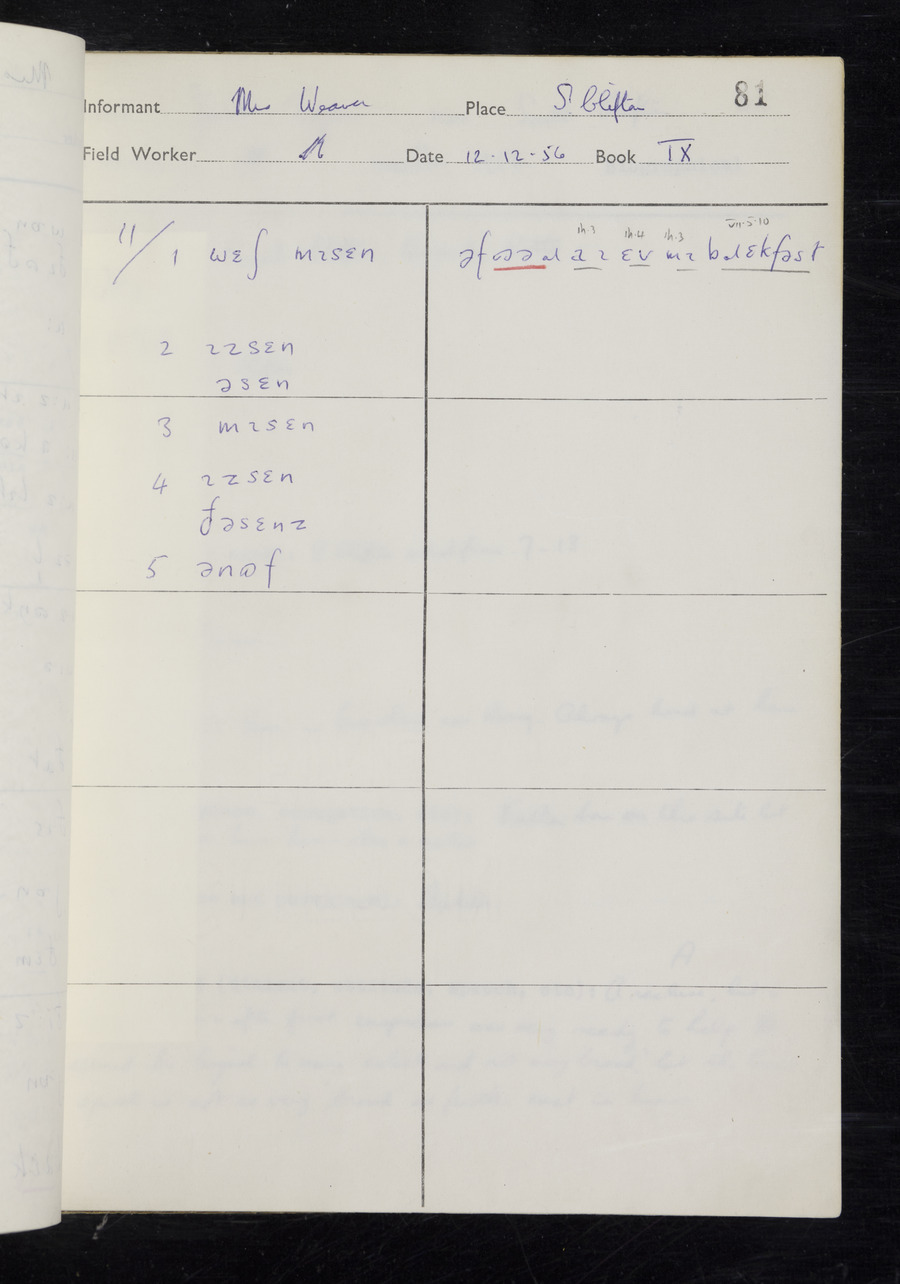 81
Informant Mrs Weaver Place S. Clifton
Field Worker Date 12.12.56 Book IX
11/ 1 wɛʃ mɪsɛn
2 ɪzsɛn
əsɛn
3 mɪsɛn
4 ɪzsɛn
ðəsɛnz
5 ənɷf
ih.3 ih.4 ih.3 VII.5.10
əfɔəɹ aɪ ɛv mɪ bɹɛkfəst